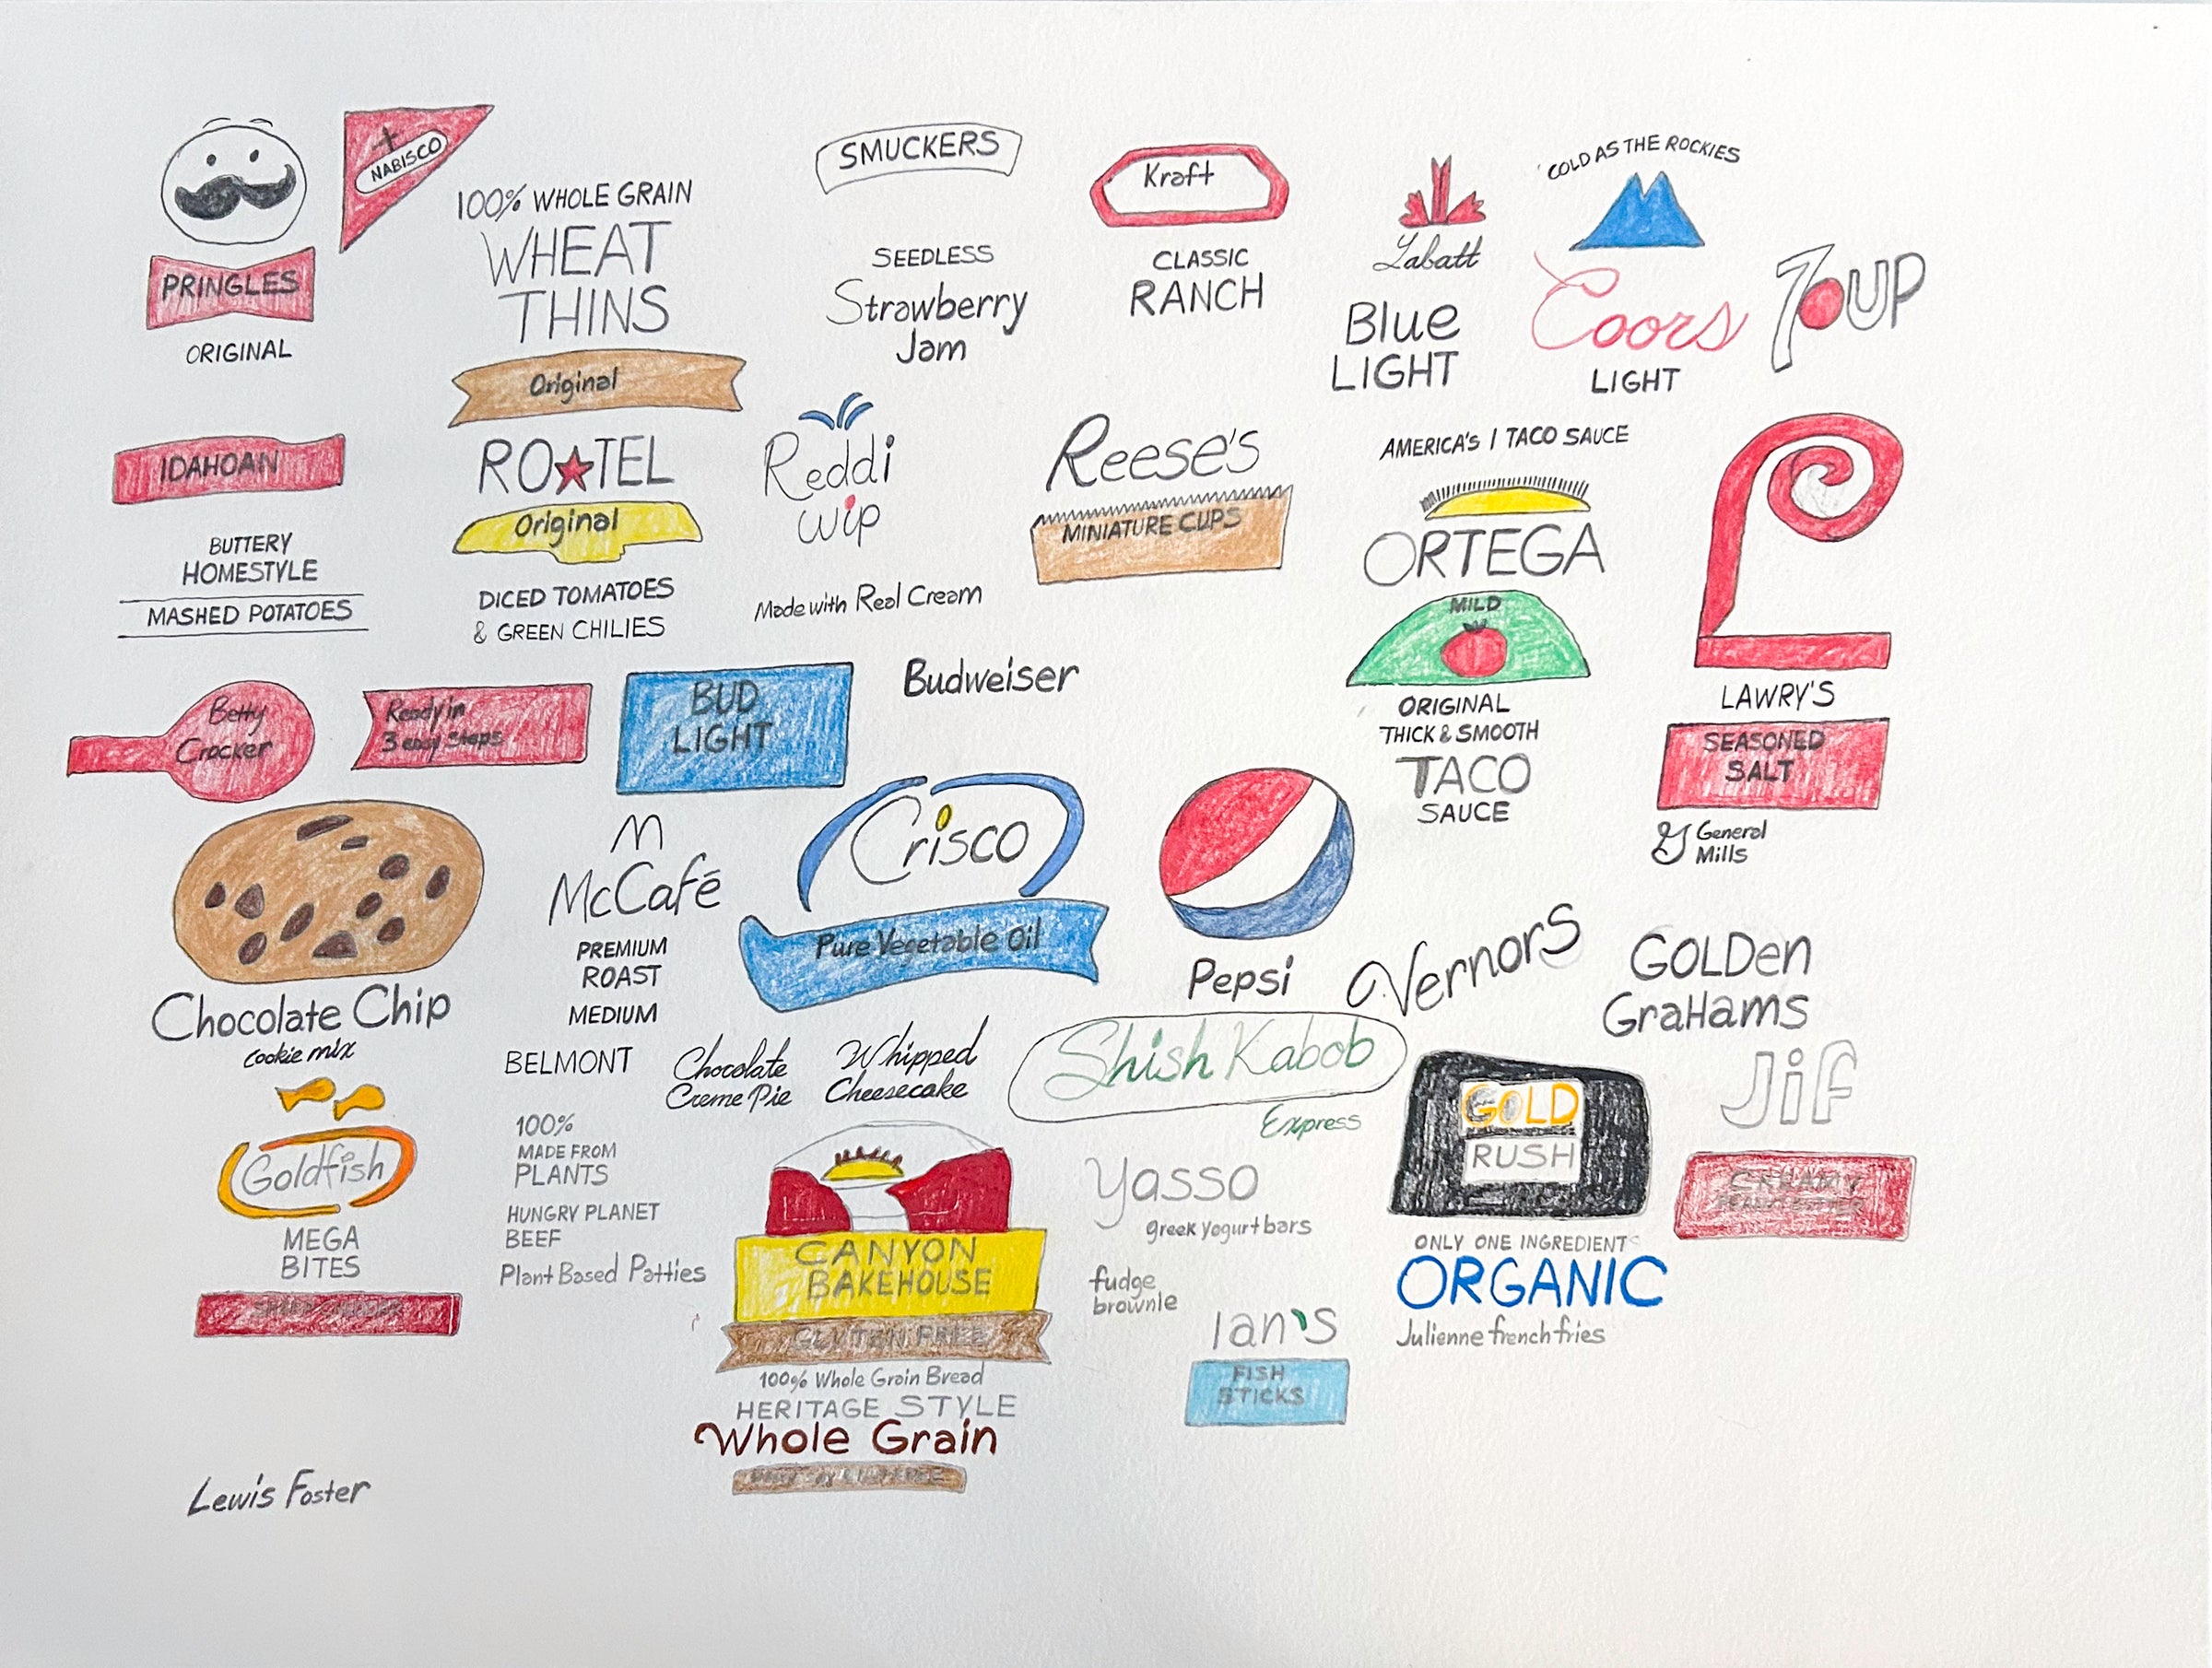 PRINGLES
ORIGINAL
NABISCO
100% WHOLE GRAIN
WHEAT
THINS
Original
SMUCKERS
SEEDLESS
Strawberry
Jam
Kraft
CLASSIC
RANCH
Labatt
Blue
LIGHT
COLD AS THE ROCKIES
Coors
LIGHT
7UP
IDAHOAN
BUTTERY
HOMESTYLE
MASHED POTATOES
RO★TEL
Original
DICED TOMATOES
& GREEN CHILIES
Reddi
wip
Made with Real Cream
Reese's
MINIATURE CUPS
AMERICA'S 1 TACO SAUCE
ORTEGA
MILD
ORIGINAL
THICK & SMOOTH
TACO
SAUCE
LAWRY'S
SEASONED
SALT
Betty
Crocker
Ready in
3 easy steps
Chocolate Chip
cookie mix
BUD
LIGHT
Budweiser
M
McCafé
PREMIUM
ROAST
MEDIUM
Crisco
Pure Vegetable Oil
Pepsi
G General
Mills
Vernors
GOLDen
GraHams
BELMONT
Chocolate
Creme Pie
Whipped
Cheesecake
Shish Kabob
Express
Jif
CREAMY
PEANUT BUTTER
Goldfish
MEGA
BITES
100%
MADE FROM
PLANTS
HUNGRY PLANET
BEEF
Plant Based Patties
CANYON
BAKEHOUSE
GLUTEN FREE
100% Whole Grain Bread
HERITAGE STYLE
Whole Grain
Yasso
greek yogurt bars
fudge
brownie
Ian's
FISH
STICKS
GOLD
RUSH
ONLY ONE INGREDIENT
ORGANIC
Julienne french fries
Lewis Foster